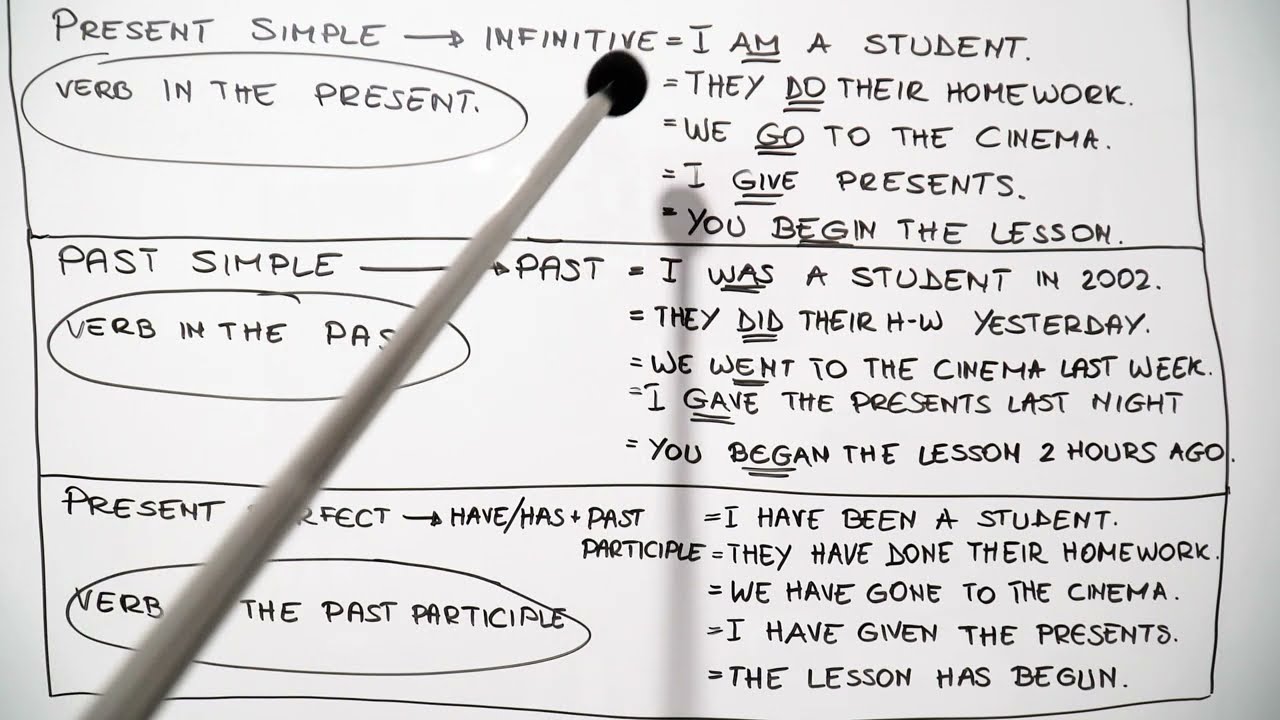 PRESENT SIMPLE → INFINITIVE = I AM A STUDENT.
VERB IN THE PRESENT. = THEY DO THEIR HOMEWORK.
= WE GO TO THE CINEMA.
= I GIVE PRESENTS.
= YOU BEGIN THE LESSON.
PAST SIMPLE → PAST = I WAS A STUDENT IN 2002.
VERB IN THE = THEY DID THEIR H-W YESTERDAY.
= WE WENT TO THE CINEMA LAST WEEK.
= I GAVE THE PRESENTS LAST NIGHT
= YOU BEGAN THE LESSON 2 HOURS AGO.
PRESENT → HAVE/HAS + PAST = I HAVE BEEN A STUDENT.
PARTICIPLE = THEY HAVE DONE THEIR HOMEWORK.
= WE HAVE GONE TO THE CINEMA.
VERB THE PAST PARTICIPLE = I HAVE GIVEN THE PRESENTS.
= THE LESSON HAS BEGUN.